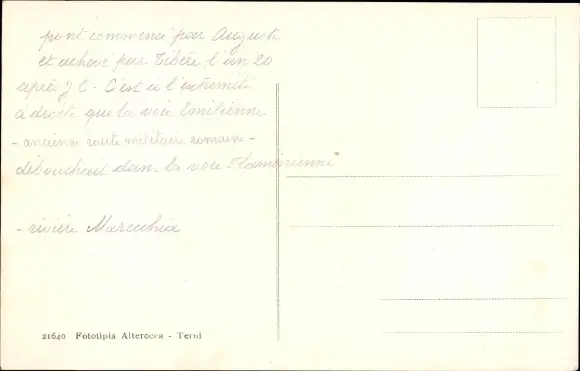 pont commencé par August
et achevé par Tibère l'an 20
après J C - C'est à l'extrémité
à droite que la voie Emilienne
- ancienne route militair romaine -
débouchait dans la voie Flaminienne
- rivière Marecchia
21640 Fototipia Alterocca - Terni